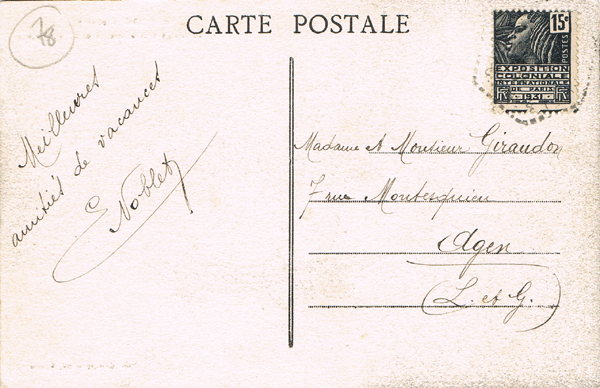 78
CARTE POSTALE
15c
POSTES
EXPOSITION
COLONIALE
INTERNATIONALE
DE PARIS
1931
Meilleures
amitiés de vacances
E Noblet
Madame & Monsieur Giraudon
7 rue Montesquieu
Agen
(L. et G.)